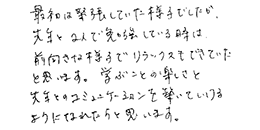 最初は緊張していた様子でしたが、
先生と2人で勉強している時は
前向きな様子でリラックスもできていた
と思います。学ぶことの楽しさと
先生とのコミュニケーションを築いていける
ようになれたらと思います。